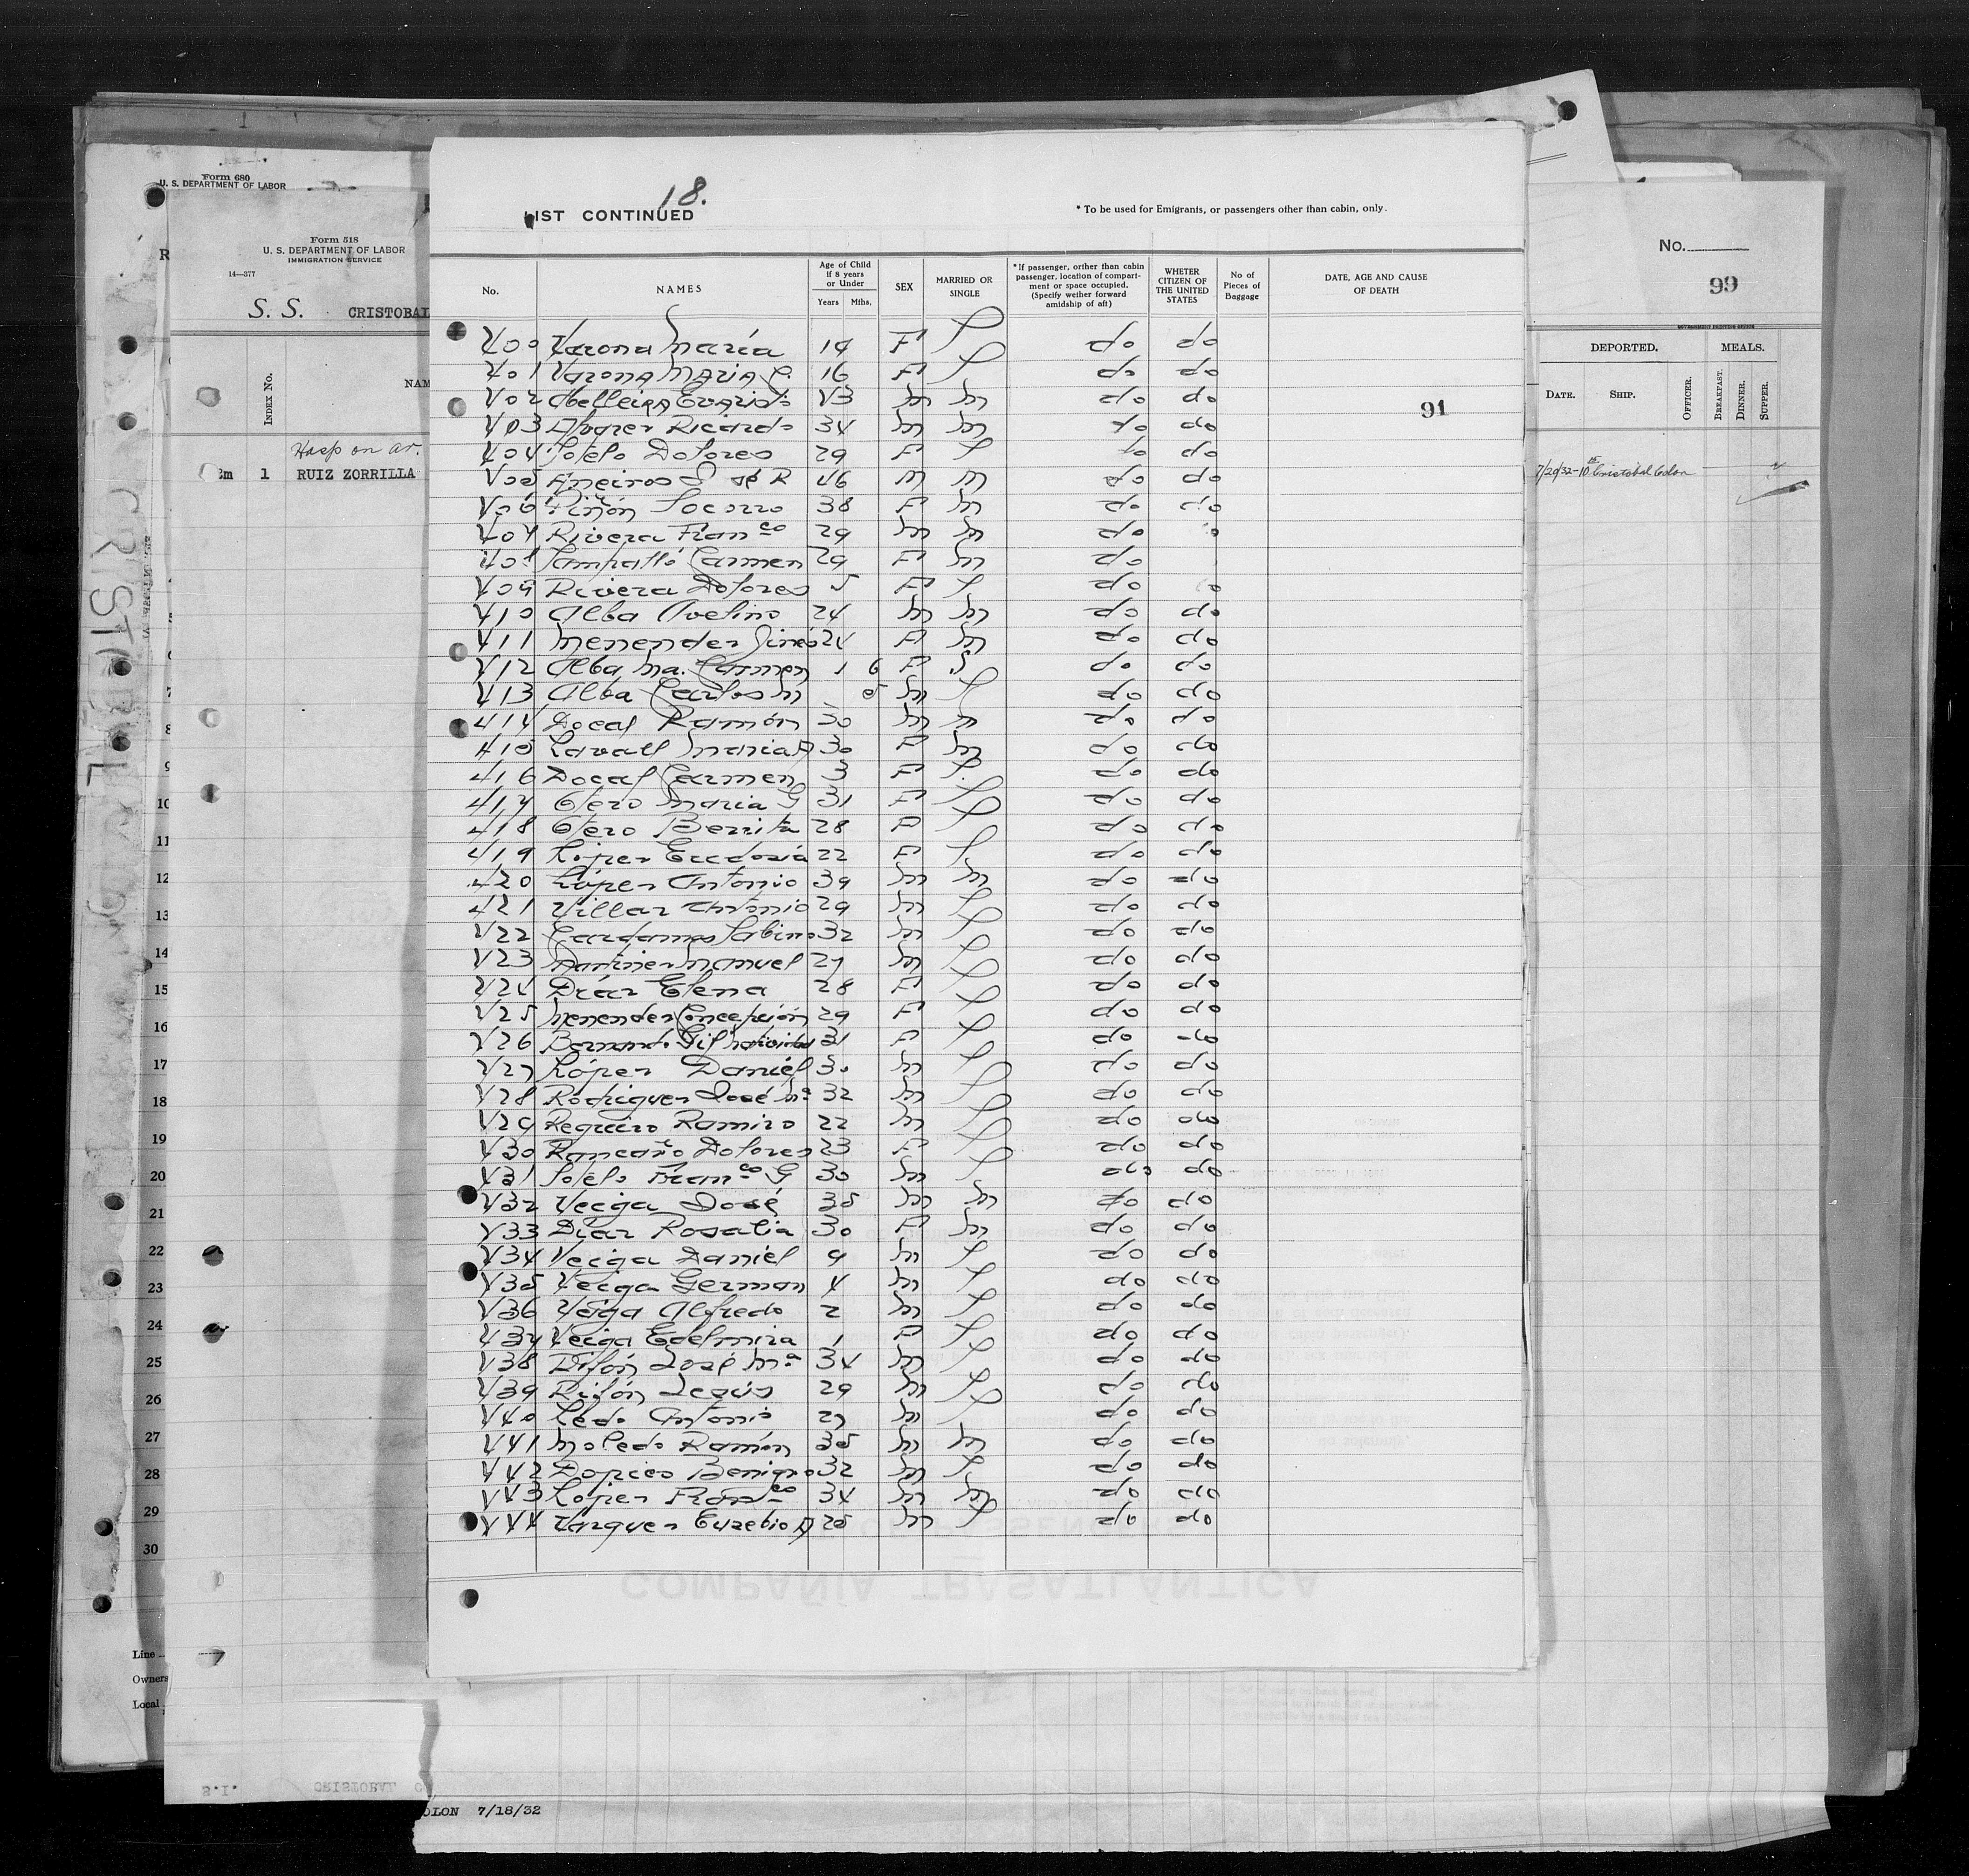 Form 680
U. S. DEPARTMENT OF LABOR
Form 518
U. S. DEPARTMENT OF LABOR
IMMIGRATION SERVICE
14—377
S. S. CRISTOBAL
INDEX No.
NAM
Hosp on ar.
1 RUIZ ZORRILLA
18.
LIST CONTINUED
* To be used for Emigrants, or passengers other than cabin, only.
No. NAMES Age of Child If 8 years or Under Years Mths. SEX MARRIED OR SINGLE * If passenger, orther than cabin passenger, location of compartment or space occupied. (Specify wether forward amidship of aft) WHETER CITIZEN OF THE UNITED STATES No of Pieces of Baggage DATE, AGE AND CAUSE OF DEATH
400 Varona María 14 F S do do
401 Varona Maria C. 16 F S do do
402 Abelleira Evaristo m m do do
91
403 Alvarez Ricardo 34 m m do do
404 Sotelo Dolores 29 F S do do
405 Aneiros 46 m m do do
406 Piñón Socorro 38 F m do do
407 Rivera Franco 29 m m do
408 Carmen 29 F m do
409 Rivera Dolores 5 F S do
410 Alba Avelino 24 m m do do
411 Menendez 24 F m do do
412 Alba Ma. Carmen 1 6 F S do do
413 Alba Carlos M 5 m S do do
414 Docal Ramón 30 m m do do
415 Maria A 30 F m do do
416 Docal Carmen 3 F S do do
417 Otero Maria G 31 F S do do
418 Otero Berrita 28 F S do do
419 López 22 F S do do
420 López Antonio 39 m m do do
421 Villar Antonio 29 m S do do
422 Sabino 32 m S do do
423 Martinez Manuel 27 m S do do
424 Díaz Elena 28 F S do do
425 Menendez Concepción 29 F S do do
426 31 F S do do
427 López Daniel 30 m S do do
428 Rodriguez José Ma 32 m S do do
429 Regueiro Ramiro 22 m S do do
430 Rancaño Dolores 23 F S do do
431 Sotelo Franco G 30 m S do do
432 Veiga José 35 m m do do
433 Díaz Rosalia 30 F m do do
434 Veiga Daniel 9 m S do do
435 Veiga German 4 m S do do
436 Veiga Alfredo 2 m S do do
437 Veiga Edelmira 1 F S do do
438 José Ma 34 m S do do
439 Jesús 29 m S do do
440 Ledo Antonio 27 m S do do
441 Moledo Ramón 35 m m do do
442 Dopico Benigno 32 m S do do
443 López Franco 34 m m do do
444 Vazquez Eusebio A 25 m S do do
No.
99
DEPORTED. MEALS.
DATE. SHIP. OFFICER. BREAKFAST. DINNER. SUPPER.
7/20/32-10 Cristobal Colon
7
8
9
10
11
12
13
14
15
16
17
18
19
20
21
22
23
24
25
26
27
28
29
30
Line
Owners
Local
COMPAÑIA TRASATLÁNTICA
S.I. CRISTOBAL
OLON 7/18/32